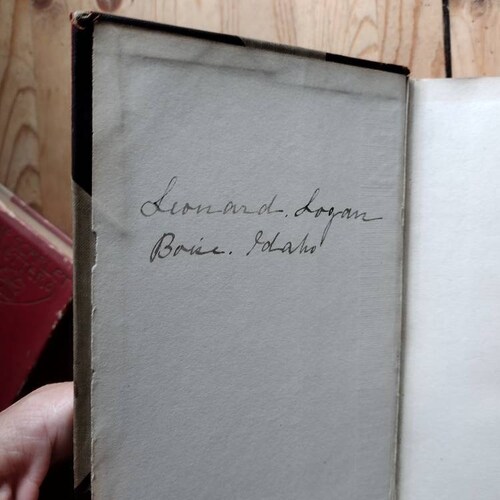 Leonard. Logan
Boise. Idaho